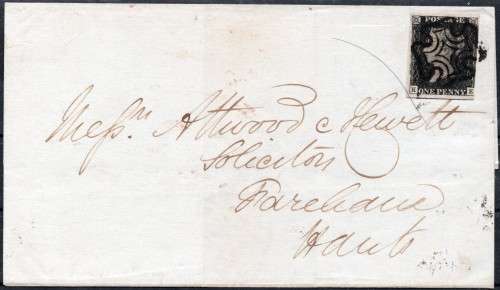 POSTAGE
ONE PENNY
Messrs Attwood & Hewett
Solicitors
Fareham
Hants